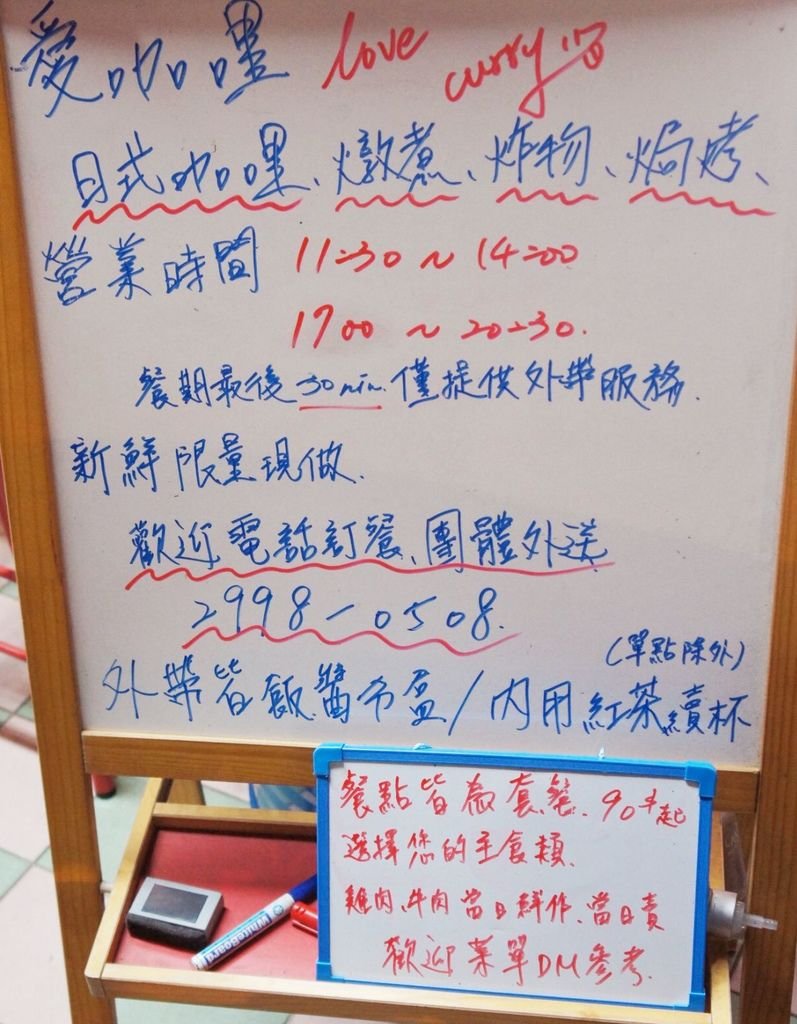 愛咖哩 love curry
日式咖哩、燉煮、炸物、焗烤、
營業時間 11:30 ~ 14:00
17:00 ~ 20:30.
餐期最後30min.僅提供外帶服務.
新鮮限量現做.
歡迎電話訂餐、團體外送
2998-0508.
(單點除外)
外帶皆飯醬分盒/內用紅茶續杯
餐點皆為套餐.90起
選擇您的主食類.
雞肉、牛肉當日鮮作、當日賣
歡迎菜單DM參考.
Whiteboard